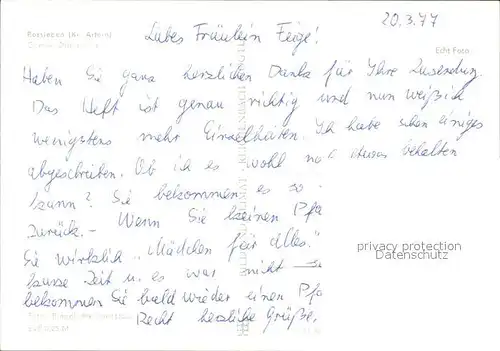 20.3.77
Rossleben (Kr. Artern)
Liebes Fräulein Feige!
Echt Foto
Haben Sie ganz herzlichen Dank für Ihre Zusendung.
Das Heft ist genau richtig und nun weiß ich
wenigstens mehr Einzelheiten. Ich habe schon einiges
abgeschrieben. Ob ich es wohl noch etwas behalten
kann? Sie bekommen es so
zurück.- Wenn Sie keinen Pfa
Sie wirklich „Mädchen für Alles."
kurze Zeit u. es war nicht so
bekommen Sie bald wieder einen Pfa
Recht herzliche Grüße.
privacy protection
Datenschutz